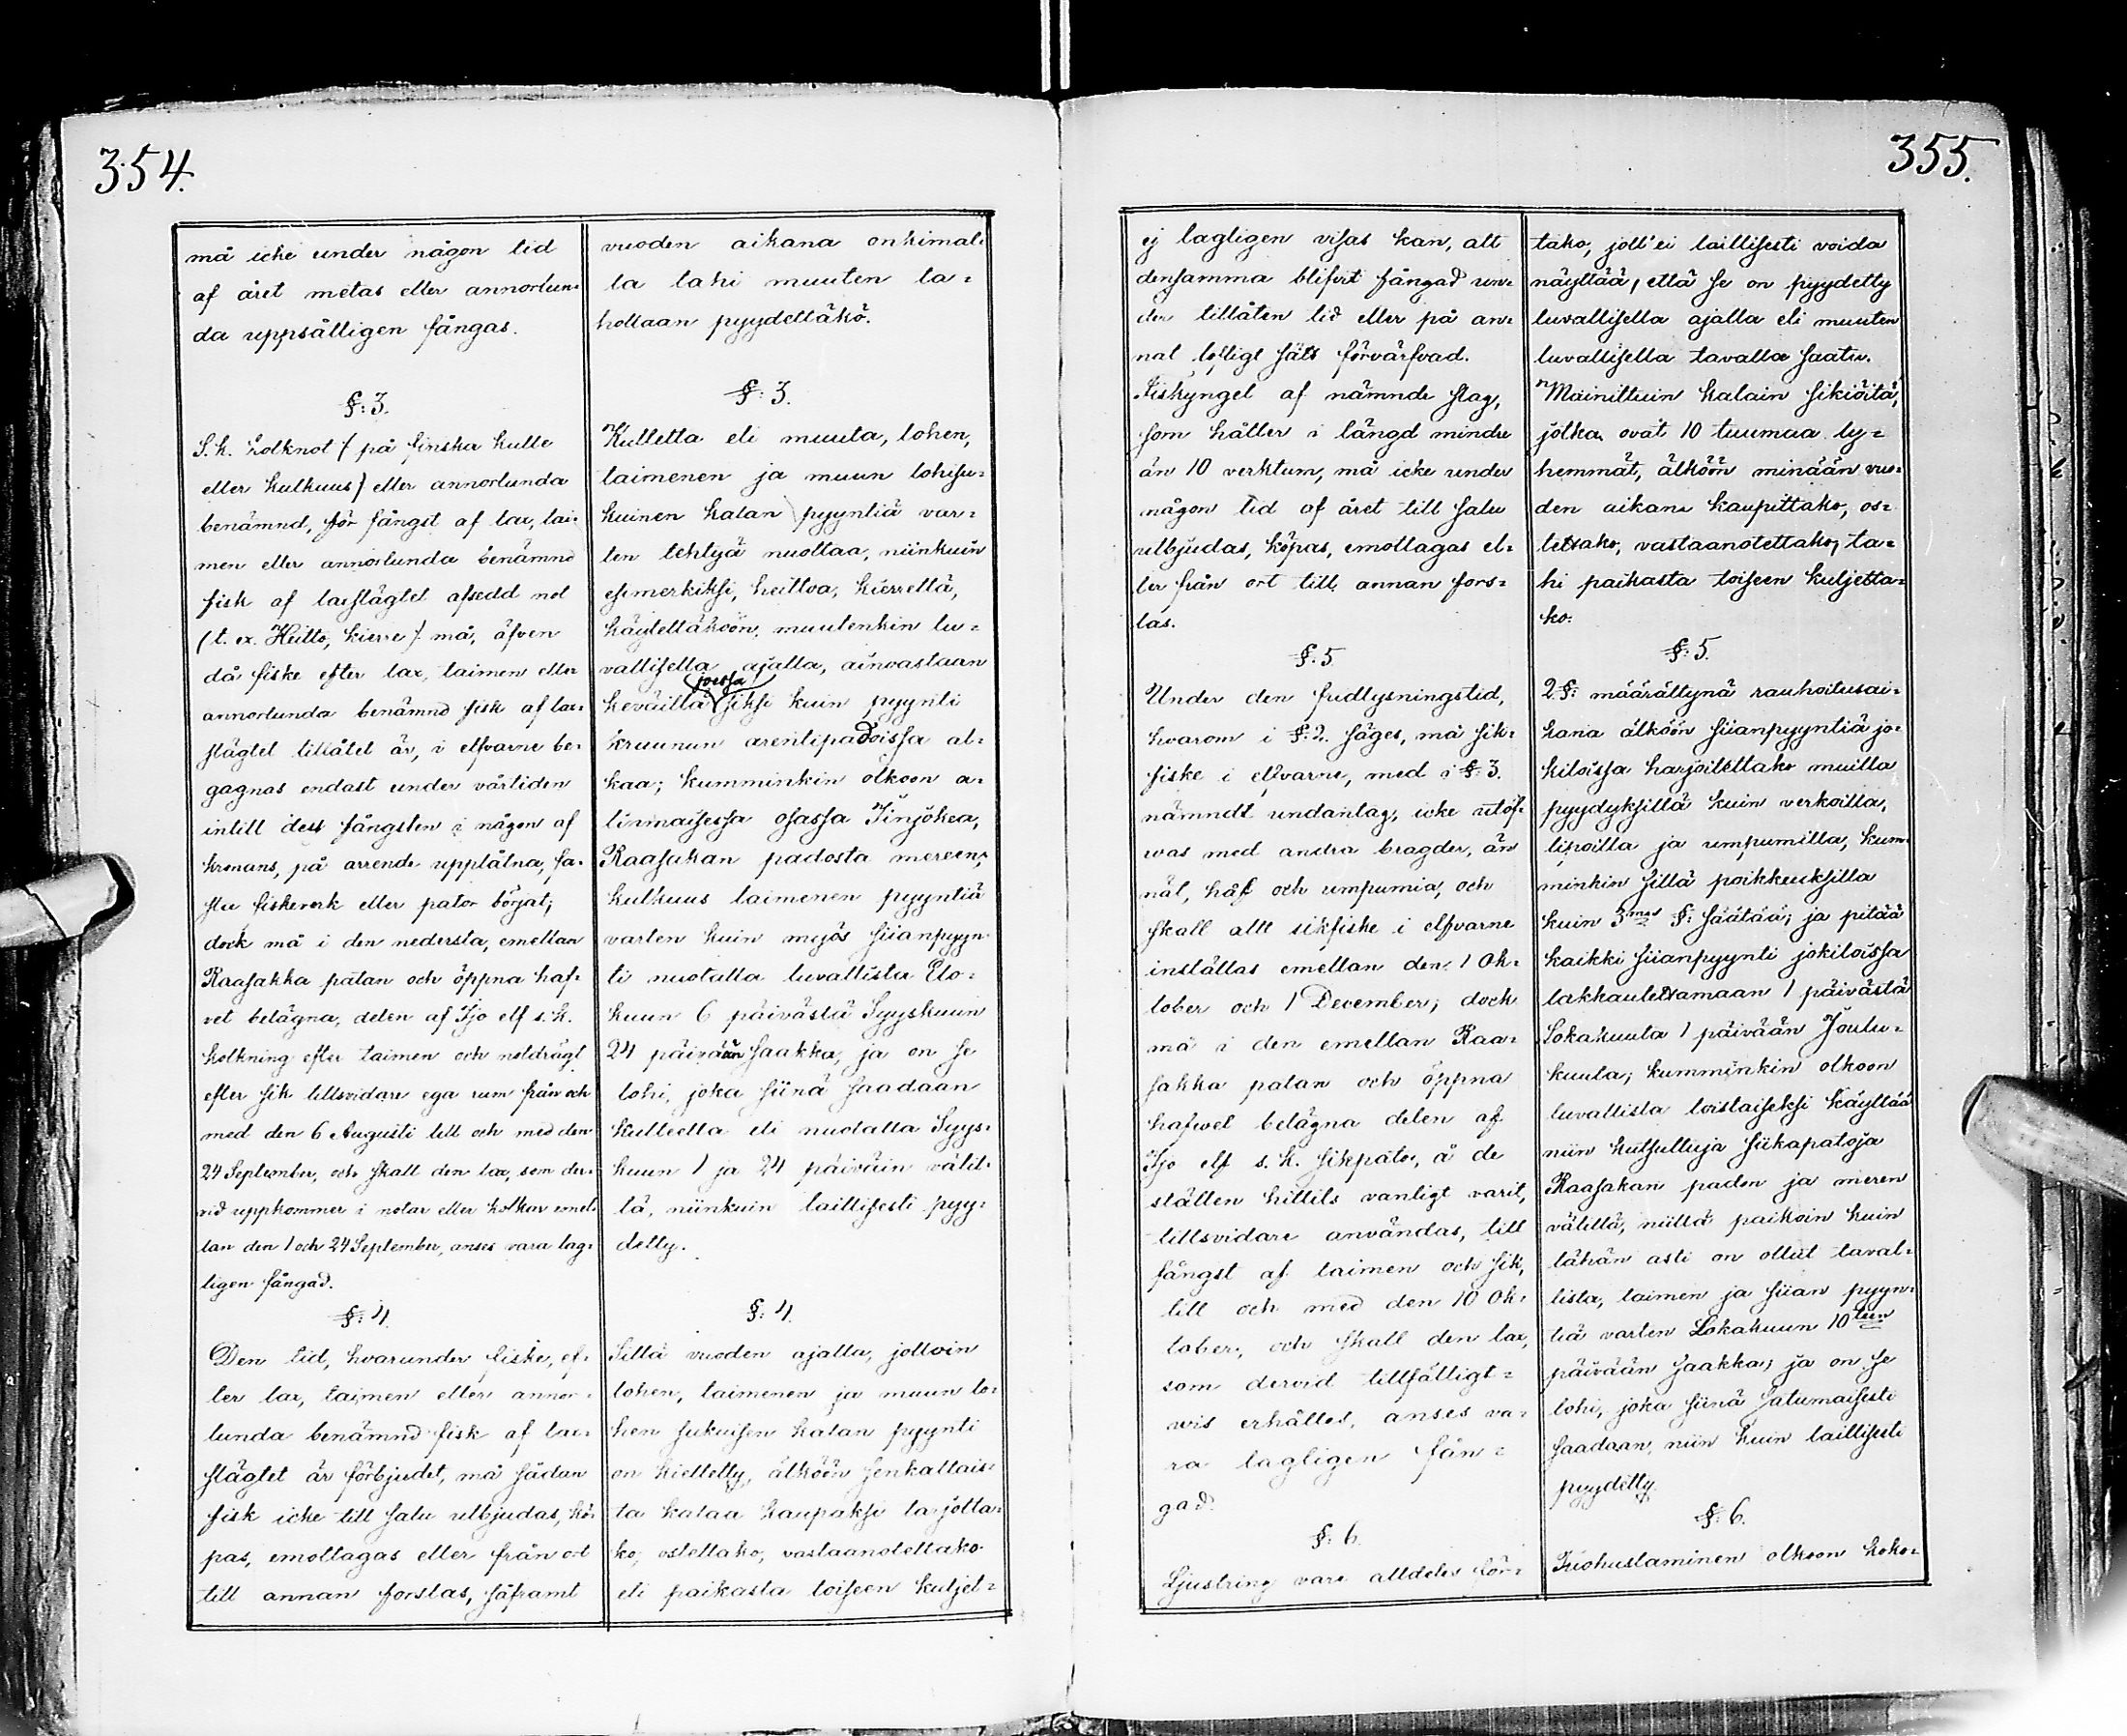 354.
må icke under någon tid
af året metas eller annorlun-
da uppsåtligen fångas.
§: 3.
S. k. kolknot /: på finska kulle
eller kulkuus/ eller annorlunda
benämnd, för fångst af lax, lai-
men eller annorlunda benämnd
fisk af laxslägtet afsedd not
(t. ex. Heitto, kierre /: må, äfven
då fiske efter lax, taimen eller
annorlunda benämnd fisk af lax-
slägtet tillåtet är, i elfvarne be-
gagnas endast under vårtiden
intill dess fångsten i någon af
kronans, på arrende upplåtna, fa-
sta fiskeverk eller pator börjat;
dock må i den nedersta, emellan
Raasakka patan och öppna haf-
vet belägna, delen af Ijo elf s. k.
kolkning efter taimen och notdrägt
efter sik tillsvidare ega rum från och
med den 6 Augusti till och med den
24 September, och skall den lax, som der-
vid uppkommer i notar eller kolkar emel-
lan den 1 och 24 September, anses vara lag-
ligen fångad.
§: 4.
Den tid, hvarunder fiske, ef-
ter lax, taimen eller annor-
lunda benämnd fisk af lax-
slägtet är förbjudet, må sådan
fisk icke till salu utbjudas, kö-
pas, emottagas eller från ort
till annan forslas, såframt
vuoden aikana onkimal-
la tahi muuten ta-
hollaan pyydettäkö.
§: 3.
Kulletta eli muuta, lohen,
taimenen ja muun lohisu-
kuinen kalan pyyntiä var-
ten tehtyä nuottaa, niinkuin
esimerkiksi, heittoa, kierrettä,
käytettäköön, muutenkin lu-
vallisella ajalla, ainoastaan
joessa
keväillä siksi kuin pyynti
kruunun arentipadoissa al-
kaa; kumminkin olkoon a-
linmaisessa osassa Iinjokea,
Raasakan padosta mereen,
kulkuus taimenen pyyntiä
varten kuin myös siianpyyn-
ti nuotalla luvallista Elo-
kuun 6 päivästä Syyskuun
24 päivään saakka, ja on se
lohi, joka siinä saadaan
kulleella eli nuotalla Syys-
kuun 1 ja 24 päiväin välil-
lä, niinkuin laillisesti pyy-
detty.
§: 4.
Sillä vuoden ajalla, jolloin
lohen, taimenen ja muun lo-
hen sukuisen kalan pyynti
on kielletty, älköön senkaltais-
ta kalaa kaupaksi tarjotta-
ko, ostettako, vastaanotettako
eli paikasta toiseen kuljet-
355.
ej lagligen visas kan, att
densamma blifvit fångad un-
der tillåten tid eller på an-
nat lofligt sätt förvärfvad.
Fiskyngel af nämnde slag,
som håller i längd mindre
än 10 verktum, må icke under
någon tid af året till salu
utbjudas, köpas, emottagas el-
ler från ort till annan fors-
las.
§: 5
Under den fridlysningstid,
hvarom i §: 2. säges, må sik-
fiske i elfvarne, med i §: 3.
nämndt undantag, icke utöf-
was med andra bragder, än
nät, håf och umpumia, och
skall allt sikfiske i elfvarne
inställas emellan den 1 Ok-
tober och 1 December; dock
må i den emellan Raa-
sakka patan och öppna
hafwet belägna delen af
Ijo elf s. k. sikpator, å de
ställen hittils vanligt varit,
tillsvidare användas, till
fångst af taimen och sik,
till och med den 10 Ok-
tober, och skall den lax,
som dervid tillfälligt-
wis erhålles, anses va-
ra lagligen fån-
gad.
§: 6.
Ljustring vare alldeles för-
tako, joll'ei laillisesti voida
näyttää, että se on pyydetty
luvallisella ajalla eli muuten
luvallisella tavalla saatu.
Mainittuin kalain sikiöitä,
jotka ovat 10 tuumaa ly-
hemmät, älköön minään vuo-
den aikana kaupittako, os-
tettako, vastaanotettako, ta-
hi paikasta toiseen kuljetta-
ko.
§: 5.
2 §: määrättynä rauhoitusai-
kana älköön siianpyyntiä jo-
kiloissa harjoitettako muilla
pyydyksillä kuin verkoilla,
lipoilla ja umpumilla, kum-
minkin sillä poikkeuksilla
kuin 3mas §: säätää; ja pitää
kaikki siianpyynti jokiloissa
lakkautettamaan 1 päivästä
Lokakuuta 1 päivään Joulu-
kuuta; kumminkin olkoon
luvallista toistaiseksi käyttää
niin kutsuttuja siikapatoja
Raasakan padon ja meren
välillä, niillä paikoin kuin
tähän asti on ollut taval-
lista, taimen ja siian pyyn-
tiä varten Lokakuun 10teen
päivään saakka; ja on se
lohi, joka siinä satumaisesti
saadaan, niin kuin laillisesti
pyydetty.
§: 6.
Tuohustaminen olkoon koko-